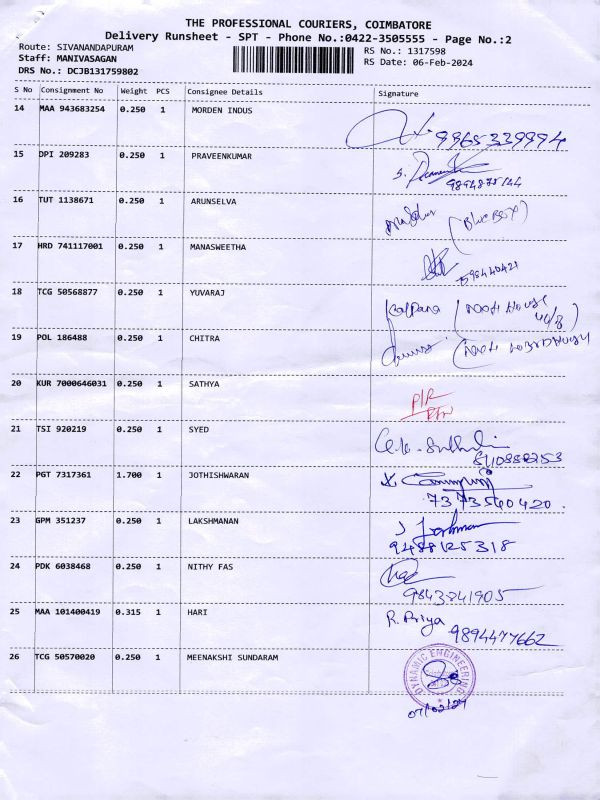 THE PROFESSIONAL COURIERS, COIMBATORE
Delivery Runsheet - SPT - Phone No.:0422-3505555 - Page No.:2
Route: SIVANANDAPURAM RS No.: 1317598
Staff: MANIVASAGAN RS Date: 06-Feb-2024
DRS No.: DCJB131759802
S No Consignment No Weight PCS Consignee Details Signature
14 MAA 943683254 0.250 1 MORDEN INDUS
9965339994
15 DPI 209283 0.250 1 PRAVEENKUMAR
16 TUT 1138671 0.250 1 ARUNSELVA
(Blue Box)
17 HRD 741117001 0.250 1 MANASWEETHA
18 TCG 50568877 0.250 1 YUVARAJ
Kalpana (Next House
19 POL 186488 0.250 1 CHITRA
20 KUR 7000646031 0.250 1 SATHYA
21 TSI 920219 0.250 1 SYED
22 PGT 7317361 1.700 1 JOTHISHWARAN
7373560420.
23 GPM 351237 0.250 1 LAKSHMANAN
9488125318
24 PDK 6038468 0.250 1 NITHY FAS
9843841905
25 MAA 101400419 0.315 1 HARI
R. Priya
9894477662
26 TCG 50570020 0.250 1 MEENAKSHI SUNDARAM
DYNAMIC ENGINEERING
07/02/24